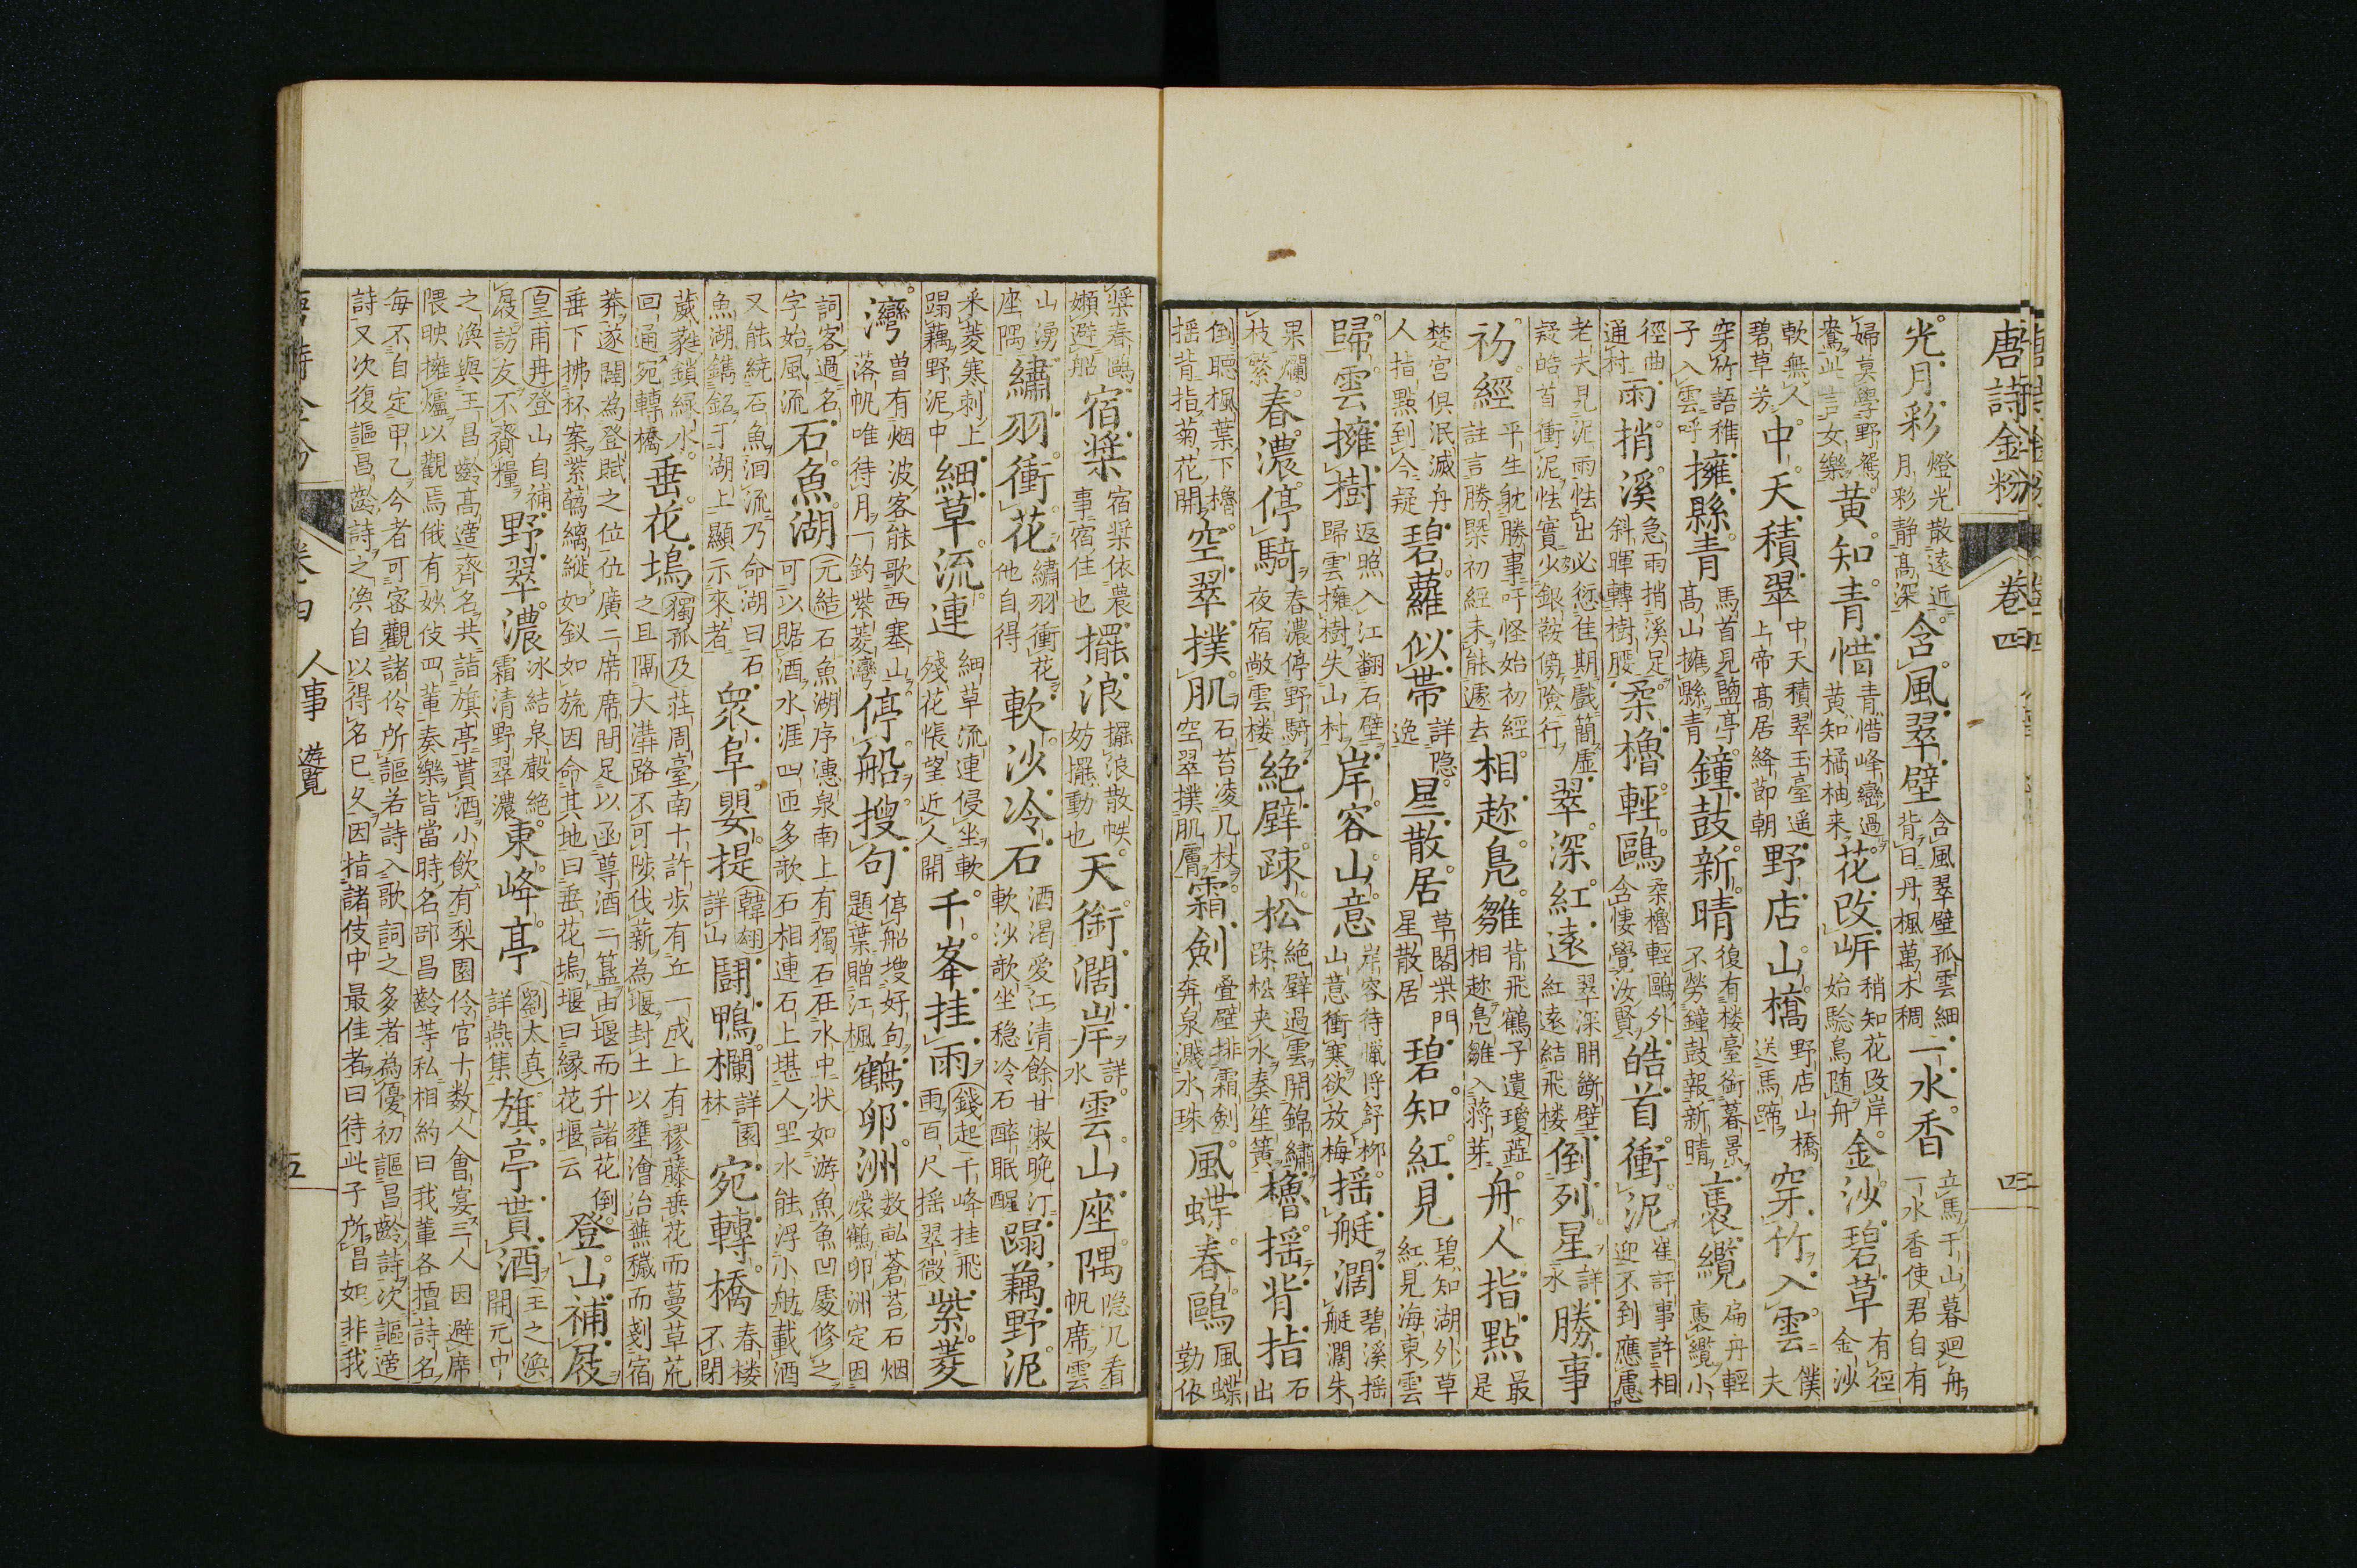 唐詩金粉 卷四 四
光月彩 燈光散遠近月彩靜高深 含風翠壁 含風翠壁孤雲細背日丹楓萬木稠 一水香 立馬千山暮廻舟一水香使君自有
婦莫學野鴛鴦 此言女樂 黃知青惜 青惜峰巒過黃知橘柚来 花改岍 稍知花改岸始驗鳥随舟 金沙碧草 有徑金沙
軟無人碧草芳 中天積翠 中天積翠玉臺遥上帝高居絳節朝 野店山橋 野店山橋送馬蹄 穿竹入雲 僕夫
穿竹語稚子入雲呼 擁縣青 馬首見鹽亭高山擁縣青 鐘鼓新晴 復有楼臺銜暮景不勞鐘鼓報新晴 裹纜 扁舟輕裹纜小
徑曲通村 雨捎溪 急雨捎溪足斜暉轉樹腰 柔櫓輕鷗 柔櫓輕鷗外含悽覺汝賢 皓首衝泥 崔評事許相迎不到應慮
老夫見泥雨怯出必愆佳期戲簡 虛疑皓首衝泥怯實少銀鞍傍險行 翠深紅遠 翠深開断壁紅遠結飛楼 倒列星 詳水 勝事
初經 平生躭勝事吁怪始初經 註言勝槩初經未能遽去 相趂鳧雛 背飛鶴子遺瓊蕋相趂鳧雛入蒋芽 舟人指點 最是
楚宫俱泯滅舟人指點到今疑 碧蘿似帶 詳隐逸 星散居 草閣柴門星散居 碧知紅見 碧知湖外草紅見海東雲
歸雲擁樹 返照入江翻石壁歸雲擁樹失山村 岸容山意 岸容待臘将舒柳山意衝寒欲放梅 揺艇濶 碧溪揺艇濶朱
果爛枝繁 春濃停騎 春濃停野騎夜宿敞雲楼 絶壁疎松 絶壁過雲開錦繡疎松夾水奏笙簧 櫓揺背指 石出
倒聽楓葉下櫓揺背指菊花開 空翠撲肌 石苔凌几杖空翠撲肌膚 霜劍 疊壁排霜劍奔泉濺水珠 風蝶春鷗 風蝶勤依
槳春鷗嬾避船 宿槳 宿槳依農事宿住也 擺浪 擺浪散帙妨擺動也 天衘濶岸 詳水 雲山座隅 隐几看帆席雲
山湧座隅 繡羽衝花 繡羽衝花他自得 軟沙冷石 酒渴愛江清餘甘漱晚汀軟沙欹坐稳冷石醉眠醒 蹋藕野泥
釆菱寒刺上蹋藕野泥中 細草流連 細草流連侵坐軟殘花悵望近人開 千峯挂雨 錢起千峰挂飛雨百尺揺翠微 紫菱
灣 曽有烟波客能歌西塞山落帆唯待月一釣紫菱灣 停船搜句 停船搜好句題葉贈江楓 鶴卵洲 数畆蒼苔石烟濛鶴卵洲定因
詞客過名字始風流 石魚湖 元結石魚湖序漶泉南上有獨石在水中状如游魚魚凹處修之可以貯酒水涯四匝多欹石相連石上堪人坐水能浮小舫載酒
又能繞石魚洄流乃命湖曰石魚湖鐫銘于湖上顯示來者 衆阜嬰堤 韓翃詳山 鬪鴨欄 詳園林 宛轉橋 春楼不閉
葳蕤鎖綠水回通宛轉橋 垂花塢 獨孤及荘周臺南十許歩有丘一成上有樛藤垂花而蔓草荒之且隔大溝路不可陟伐薪為堰封土以壅澮治蕪穢而剗宿
莽遂闢為登賦之位位廣二席席間足以函尊酒二簋由堰而升諸花倒垂下拂杯案縈繞縭縱如釵如旒因命其地曰垂花塢堰曰緣花堰云 登山補屐
皇甫冉登山自補屐訪友不齎糧 野翠濃 冰結泉聲絶霜清野翠濃 東峰亭 劉太真詳燕集 旗亭貰酒 王之渙開元中
之渙與王昌齡高適齊名共詣旗亭貰酒小飲有梨園伶官十数人會宴三人因避席隈映擁爐以觀焉俄有妙伎四輩奏樂皆當時名部昌齡等私相約曰我輩各擅詩名
每不自定甲乙今者可密觀諸伶所謳若詩入歌詞之多者為優初謳昌齡詩次謳適詩又次復謳昌齡詩之渙自以得名已久因指諸伎中最佳者曰待此子所唱如非我
人事 遊覧
五